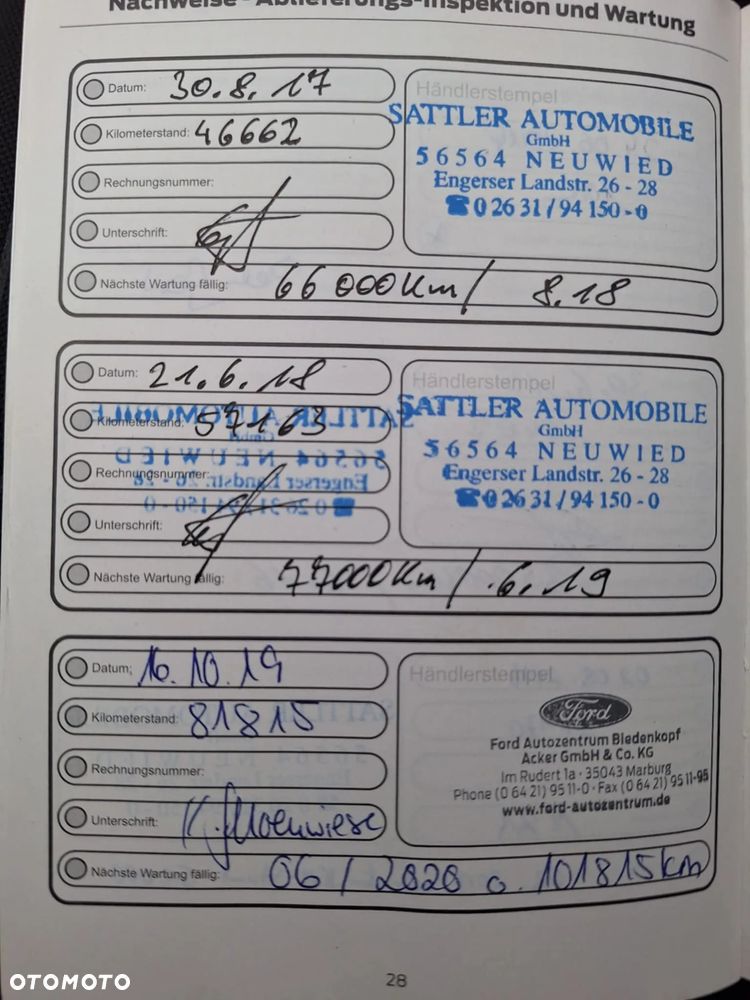 Nachweise - Ablieferungs-Inspektion und Wartung
Datum: 30.8.17
Kilometerstand: 46662
Rechnungsnummer:
Unterschrift:
Nächste Wartung fällig: 66000Km / 8.18
Händlerstempel
SATTLER AUTOMOBILE
GmbH
56564 NEUWIED
Engerser Landstr. 26 - 28
☎ 0 26 31 / 94 150 - 0
Datum: 21.6.18
Kilometerstand: 57163
Rechnungsnummer:
Unterschrift:
Nächste Wartung fällig: 77000Km / .6.19
Händlerstempel
SATTLER AUTOMOBILE
GmbH
56564 NEUWIED
Engerser Landstr. 26 - 28
☎ 0 26 31 / 94 150 - 0
Datum: 16.10.19
Kilometerstand: 81815
Rechnungsnummer:
Unterschrift:
Nächste Wartung fällig: 06 / 2020 o. 101815km
Händlerstempel
Ford
Ford Autozentrum Biedenkopf
Acker GmbH & Co. KG
Im Rudert 1a · 35043 Marburg
Phone (0 64 21) 95 11-0 · Fax (0 64 21) 95 11-95
www.ford-autozentrum.de
28
OTOMOTO